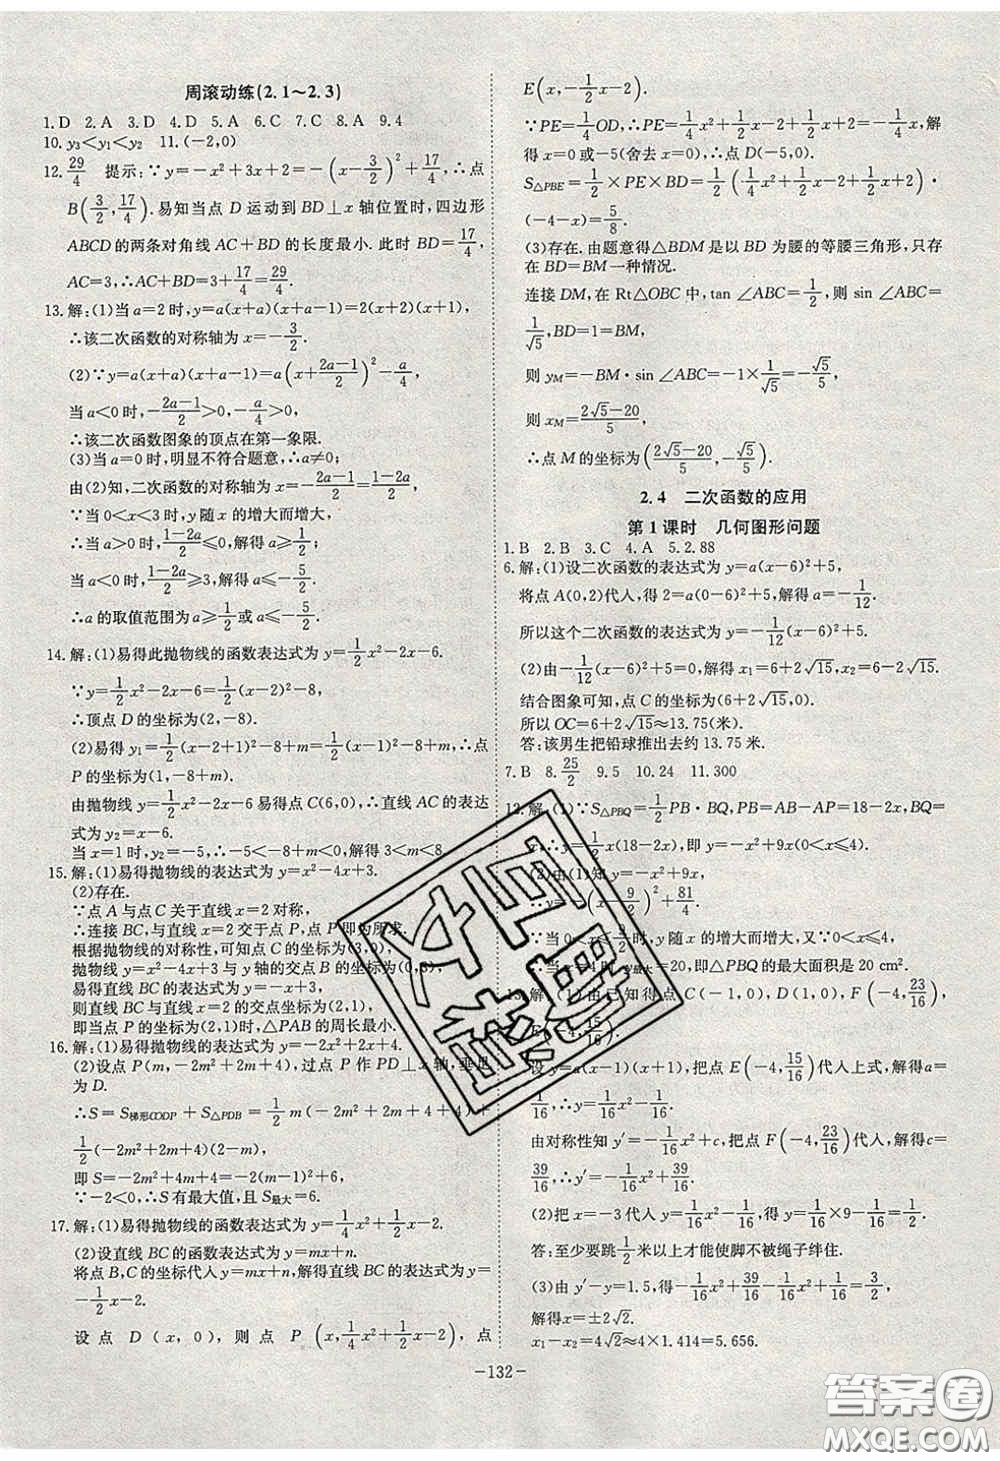 周滚动练(2.1～2.3)
1.D 2.A 3.D 4.D 5.A 6.C 7.C 8.A 9.4
10.y₃<y₁<y₂ 11.(-2,0)
12.29/4 提示:∵y=-x²+3x+2=-(x-3/2)²+17/4,∴点
B(3/2,17/4).易知当点 D 运动到 BD⊥x 轴位置时,四边形
ABCD 的两条对角线 AC+BD 的长度最小.此时 BD=17/4,
AC=3,∴AC+BD=3+17/4=29/4.
13.解:(1)当 a=2 时,y=a(x+a)(x+a-1)=2(x+2)(x+1),
∴该二次函数的对称轴为 x=-3/2.
(2)∵y=a(x+a)(x+a-1)=a(x+(2a-1)/2)²-a/4,
当 a<0 时,-(2a-1)/2>0,-a/4>0,
∴该二次函数图象的顶点在第一象限.
(3)当 a=0 时,明显不符合题意,∴a≠0.
由(2)知,二次函数的对称轴为 x=-(2a-1)/2=(1-2a)/2.
∵当 0<x<3 时,y 随 x 的增大而增大,
∴当 a>0 时,(1-2a)/2≤0,解得 a≥1/2;
当 a<0 时,(1-2a)/2≥3,解得 a≤-5/2.
∴a 的取值范围为 a≥1/2或 a≤-5/2.
14.解:(1)易得此抛物线的函数表达式为 y=1/2x²-2x-6.
∵y=1/2x²-2x-6=1/2(x-2)²-8,
∴顶点 D 的坐标为(2,-8).
(2)易得 y₁=1/2(x-2+1)²-8=1/2(x-1)²-8+m,∴点
P 的坐标为(1,-8+m).
由抛物线 y=1/2x²-2x-6 易得点 C(6,0),∴直线 AC 的表达
式为 y₂=x-6.
当 x=1 时,y₂=-5,∴-5<-8+m<0,解得 3<m<8.
15.解:(1)易得抛物线的表达式为 y=x²-4x+3.
(2)存在.
∵点 A 与点 C 关于直线 x=2 对称,
∴连接 BC,与直线 x=2 交于点 P,点 P 即为所求.
根据抛物线的对称性,可知点 C 的坐标为(3,0),
抛物线 y=x²-4x+3 与 y 轴的交点 B 的坐标为(0,3),
易得直线 BC 的表达式为 y=-x+3,
则直线 BC 与直线 x=2 的交点坐标为(2,1),
即当点 P 的坐标为(2,1)时,△PAB 的周长最小.
16.解:(1)易得抛物线的表达式为 y=-2x²+2x+4.
(2)设点 P(m,-2m²+2m+4),过点 P 作 PD⊥x 轴,垂足
为 D.
∴S=S梯形CODP+S△PDB=1/2m(-2m²+2m+4+4)+
1/2(-2m²+2m+4)(2-m),
即 S=-2m²+4m+4=-2(m-1)²+6,
∵-2<0,∴S 有最大值,且 S最大=6.
17.解:(1)易得抛物线的函数表达式为 y=1/4x²+1/2x-2.
(2)设直线 BC 的函数表达式为 y=mx+n.
将点 B,C 的坐标代入 y=mx+n,解得直线 BC 的表达式为 y=
-1/2x-2.
设点 D(x,0),则点 P(x,1/4x²+1/2x-2),点
E(x,-1/2x-2).
∵PE=1/4OD,∴PE=1/4x²+1/2x-2+1/2x+2=-1/4x,解
得 x=0 或-5(舍去 x=0),∴点 D(-5,0).
S△PBE=1/2×PE×BD=1/2(1/4x²+1/2x-2+1/2x+2)·
(-4-x)=5/8.
(3)存在.由题意得△BDM 是以 BD 为腰的等腰三角形,只存
在 BD=BM 一种情况.
连接 DM,在 Rt△OBC 中,tan ∠ABC=1/2,则 sin∠ABC=
1/√5,BD=1=BM,
则 yM=-BM·sin ∠ABC=-1×1/√5=-√5/5,
则 xM=(2√5-20)/5,
∴点 M 的坐标为((2√5-20)/5,-√5/5).
2.4 二次函数的应用
第1课时 几何图形问题
1.B 2.B 3.C 4.A 5.2.88
6.解:(1)设二次函数的表达式为 y=a(x-6)²+5,
将点 A(0,2)代入,得 2=a(0-6)²+5,解得 a=-1/12.
所以这个二次函数的表达式为 y=-1/12(x-6)²+5.
(2)由-1/12(x-6)²+5=0,解得 x₁=6+2√15,x₂=6-2√15.
结合图象可知,点 C 的坐标为(6+2√15,0).
所以 OC=6+2√15≈13.75(米).
答:该男生把铅球推出去约 13.75 米.
7.B 8.25/2 9.5 10.24 11.300
12.解:(1)∵S△PBQ=1/2PB·BQ,PB=AB-AP=18-2x,BQ=
x,∴y=1/2x(18-2x),即 y=-x²+9x(0<x≤4).
(2)由(1)知 y=-x²+9x,
∴y=-(x-9/2)²+81/4,
∵当 0<x≤9/2时,y 随 x 的增大而增大,又∵0<x≤4,
∴当 x=4 时,y最大=20,即△PBQ 的最大面积是 20 cm².
13.解:(1)由已知得点 C(-1,0),D(1,0),F(-4,23/16),
E(-4,15/16).
设 y=a(x-1)(x+1),把点 E(-4,15/16)代入上式,解得 a=
1/16,∴y=1/16x²-1/16.
由对称性知 y′=-1/16x²+c,把点 F(-4,23/16)代入,解得 c=
39/16,∴y′=-1/16x²+39/16.
(2)把 x=-3 代入 y=1/16x²-1/16,得 y=1/16×9-1/16=1/2.
答:至少要跳1/2米以上才能使脚不被绳子绊住.
(3)由 y′-y=1.5,得-1/16x²+39/16-1/16x²+1/16=3/2,
解得 x=±2√2.
x₁-x₂=4√2≈4×1.414=5.656.
-132-
答案圈
MXQE.COM